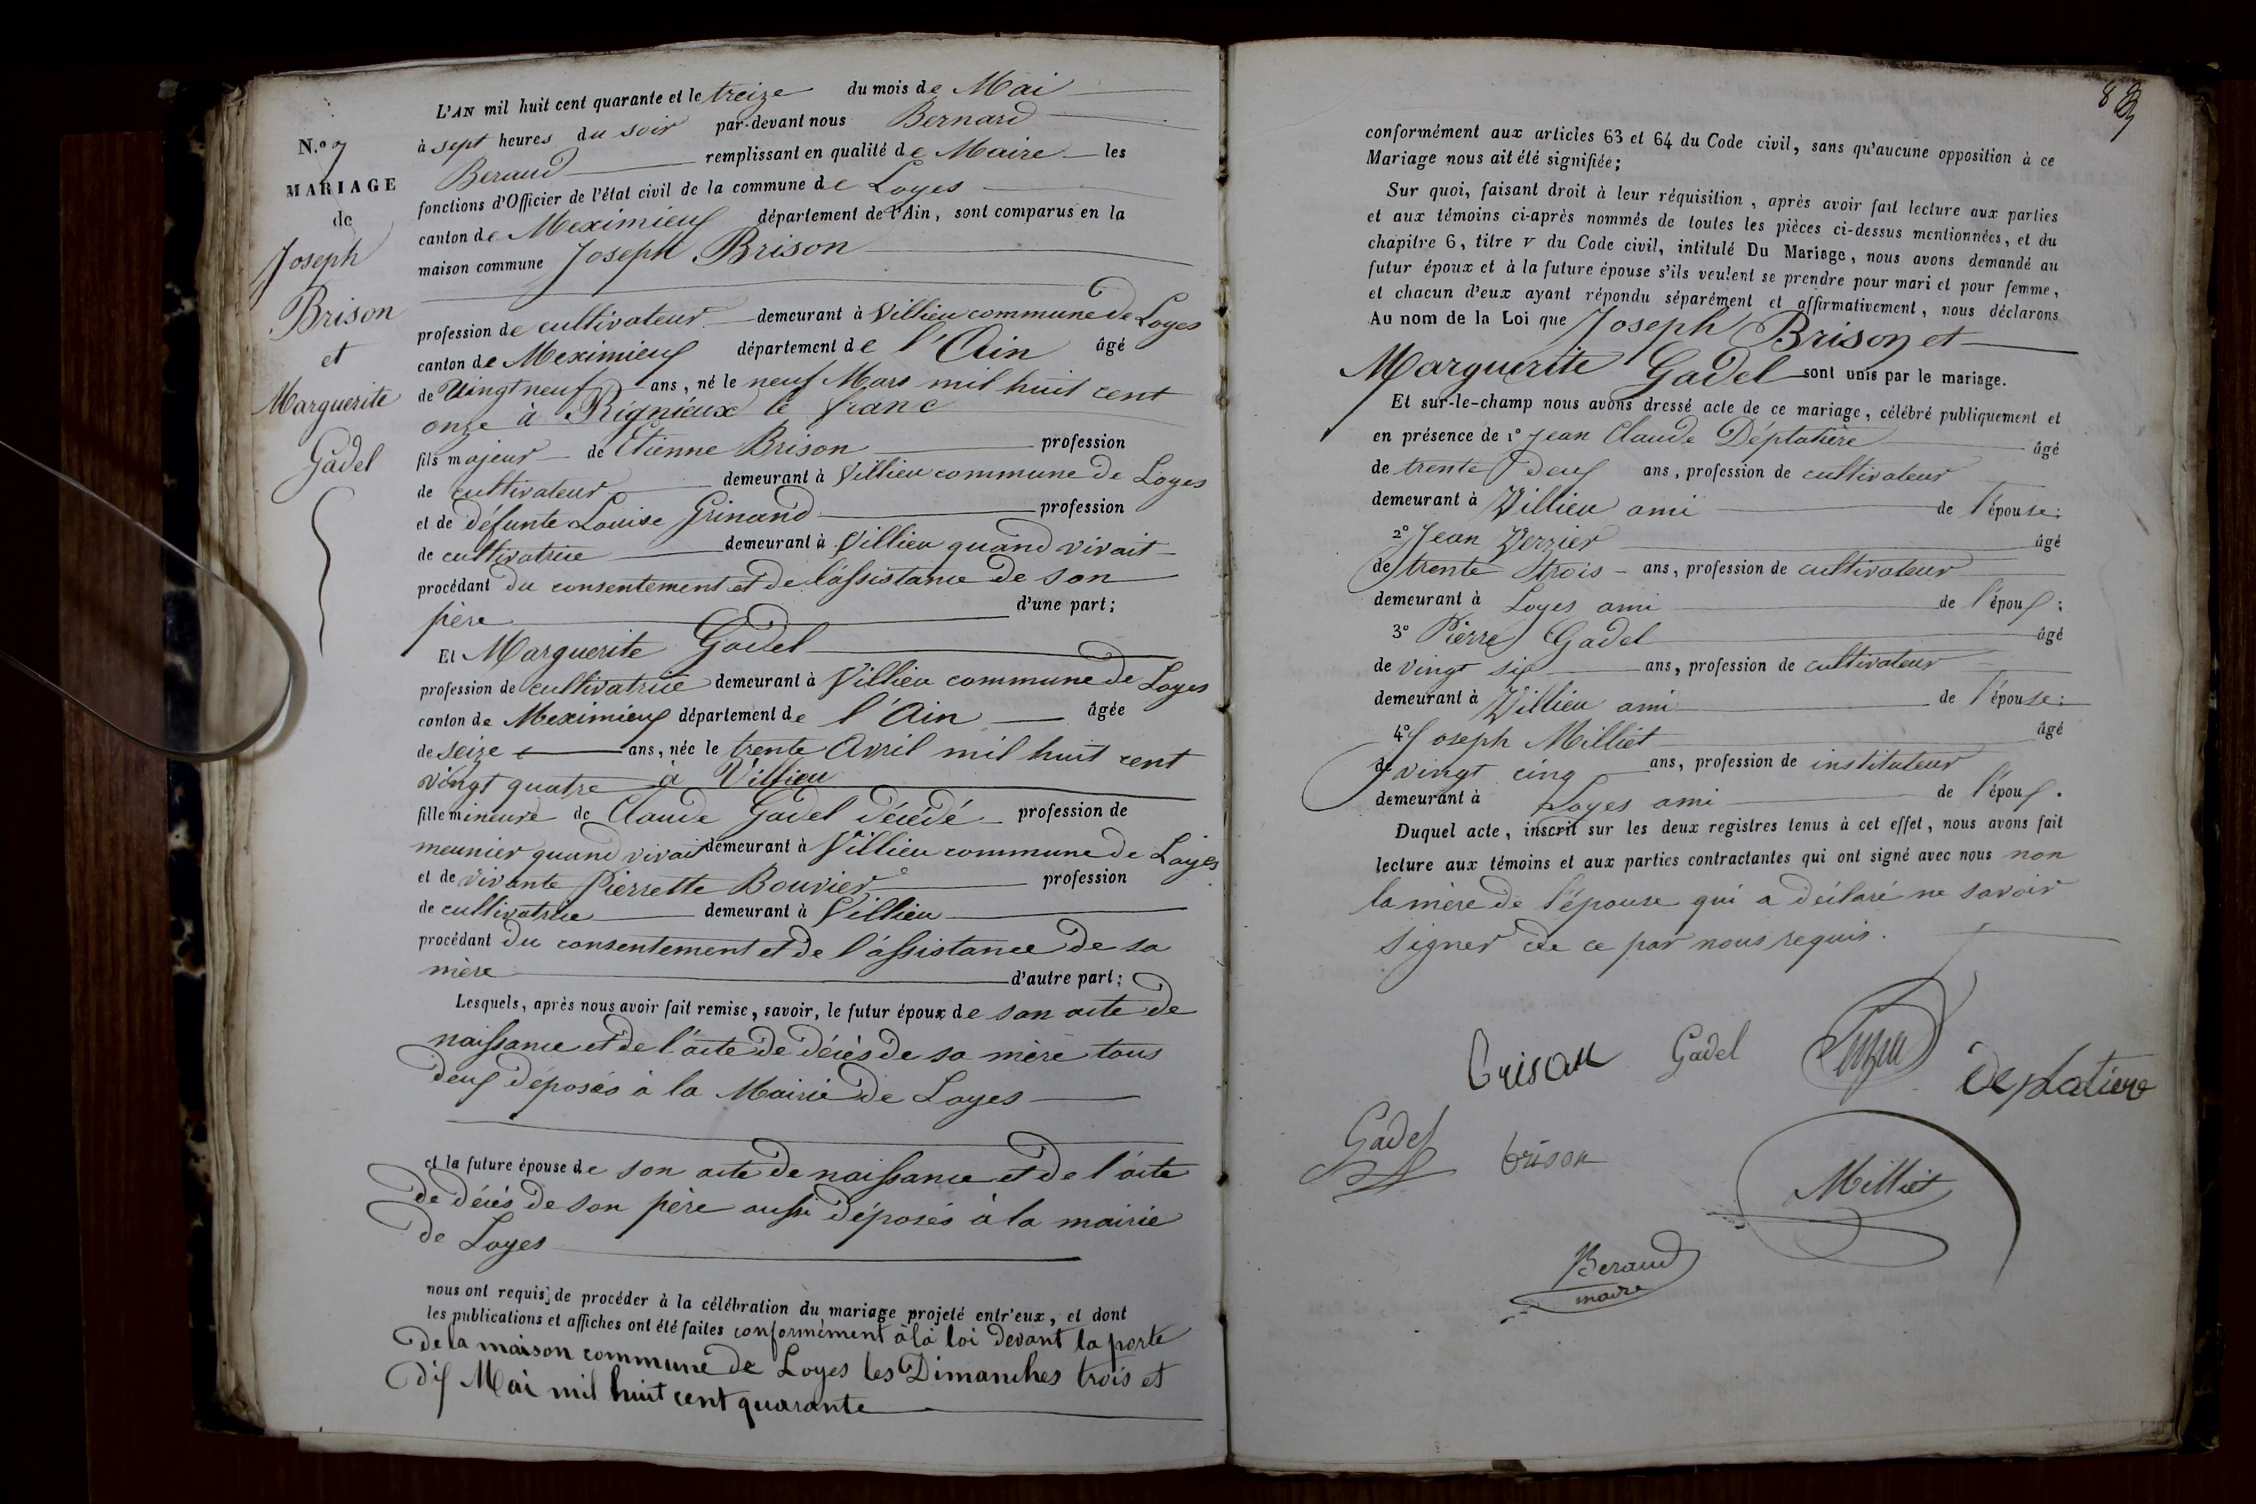 N.º 7
MARIAGE
de
Joseph
Brison
et
Marguerite
Gadel
L'AN mil huit cent quarante et le treize du mois de Mai
à sept heures du soir par-devant nous Bernard
Beraud remplissant en qualité de Maire les
fonctions d'Officier de l'état civil de la commune de Loyes
canton de Meximieux département de l'Ain, sont comparus en la
maison commune Joseph Brison
profession de cultivateur demeurant à Villieu commune de Loyes
canton de Meximieux département de l'Ain âgé
de Vingt neuf ans, né le neuf Mars mil huit cent
onze à Rignieux le franc
fils majeur de Etienne Brison profession
de cultivateur demeurant à Villieu commune de Loyes
et de défunte Louise Grinand profession
de cultivatrice demeurant à Villieu quand vivait
procédant du consentement et de l'assistance de son
père d'une part;
Et Marguerite Gadel
profession de cultivatrice demeurant à Villieu commune de Loyes
canton de Meximieux département de l'Ain âgée
de seize ans, née le trente Avril mil huit cent
vingt quatre à Villieu
fille mineure de Claude Gadel décédé profession de
meunier quand vivait demeurant à Villieu commune de Loyes
et de vivante Pierrette Bouvier profession
de cultivatrice demeurant à Villieu
procédant du consentement et de l'assistance de sa
mère d'autre part;
Lesquels, après nous avoir fait remise, savoir, le futur époux de son acte de
naissance et de l'acte de décès de sa mère tous
deux déposés à la Mairie de Loyes
et la future épouse de son acte de naissance et de l'acte
de décès de son père aussi déposés à la mairie
de Loyes
nous ont requis de procéder à la célébration du mariage projeté entr'eux, et dont
les publications et affiches ont été faites conformément à la loi devant la porte
de la maison commune de Loyes les Dimanches trois et
dix Mai mil huit cent quarante
conformément aux articles 63 et 64 du Code civil, sans qu'aucune opposition à ce
Mariage nous ait été signifiée;
Sur quoi, faisant droit à leur réquisition, après avoir fait lecture aux parties
et aux témoins ci-après nommés de toutes les pièces ci-dessus mentionnées, et du
chapitre 6, titre V du Code civil, intitulé Du Mariage, nous avons demandé au
futur époux et à la future épouse s'ils veulent se prendre pour mari et pour femme,
et chacun d'eux ayant répondu séparément et affirmativement, nous déclarons
Au nom de la Loi que Joseph Brison et
Marguerite Gadel sont unis par le mariage.
Et sur-le-champ nous avons dressé acte de ce mariage, célébré publiquement et
en présence de 1º Jean Claude Déplatière âgé
de trente deux ans, profession de cultivateur
demeurant à Villieu ami de l'épouse;
2º Jean Verzier âgé
de trente trois ans, profession de cultivateur
demeurant à Loyes ami de l'époux;
3º Pierre Gadel âgé
de vingt six ans, profession de cultivateur
demeurant à Villieu ami de l'épouse;
4º Joseph Milliet âgé
de vingt cinq ans, profession de instituteur
demeurant à Loyes ami de l'époux.
Duquel acte, inscrit sur les deux registres tenus à cet effet, nous avons fait
lecture aux témoins et aux parties contractantes qui ont signé avec nous non
la mère de l'épouse qui a déclaré ne savoir
signer de ce par nous requis.
Brison Gadel deplatiere
Gadel brison Milliet
Beraud
maire